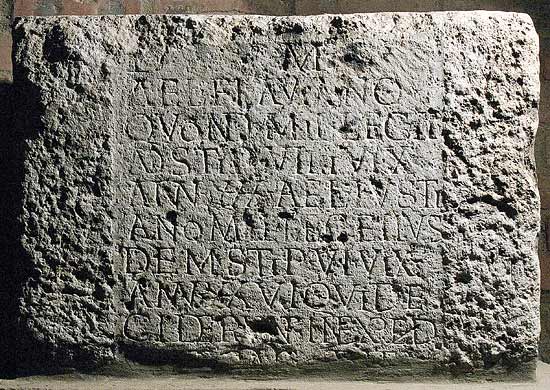 M
AEL FLAVIANO
QVOND MIL LEG II
AD STIP VII VIX
ANN XXX AEL IVSTI
ANO MIL LEG EIVS
DEM STIP VI VIX
QVI DE